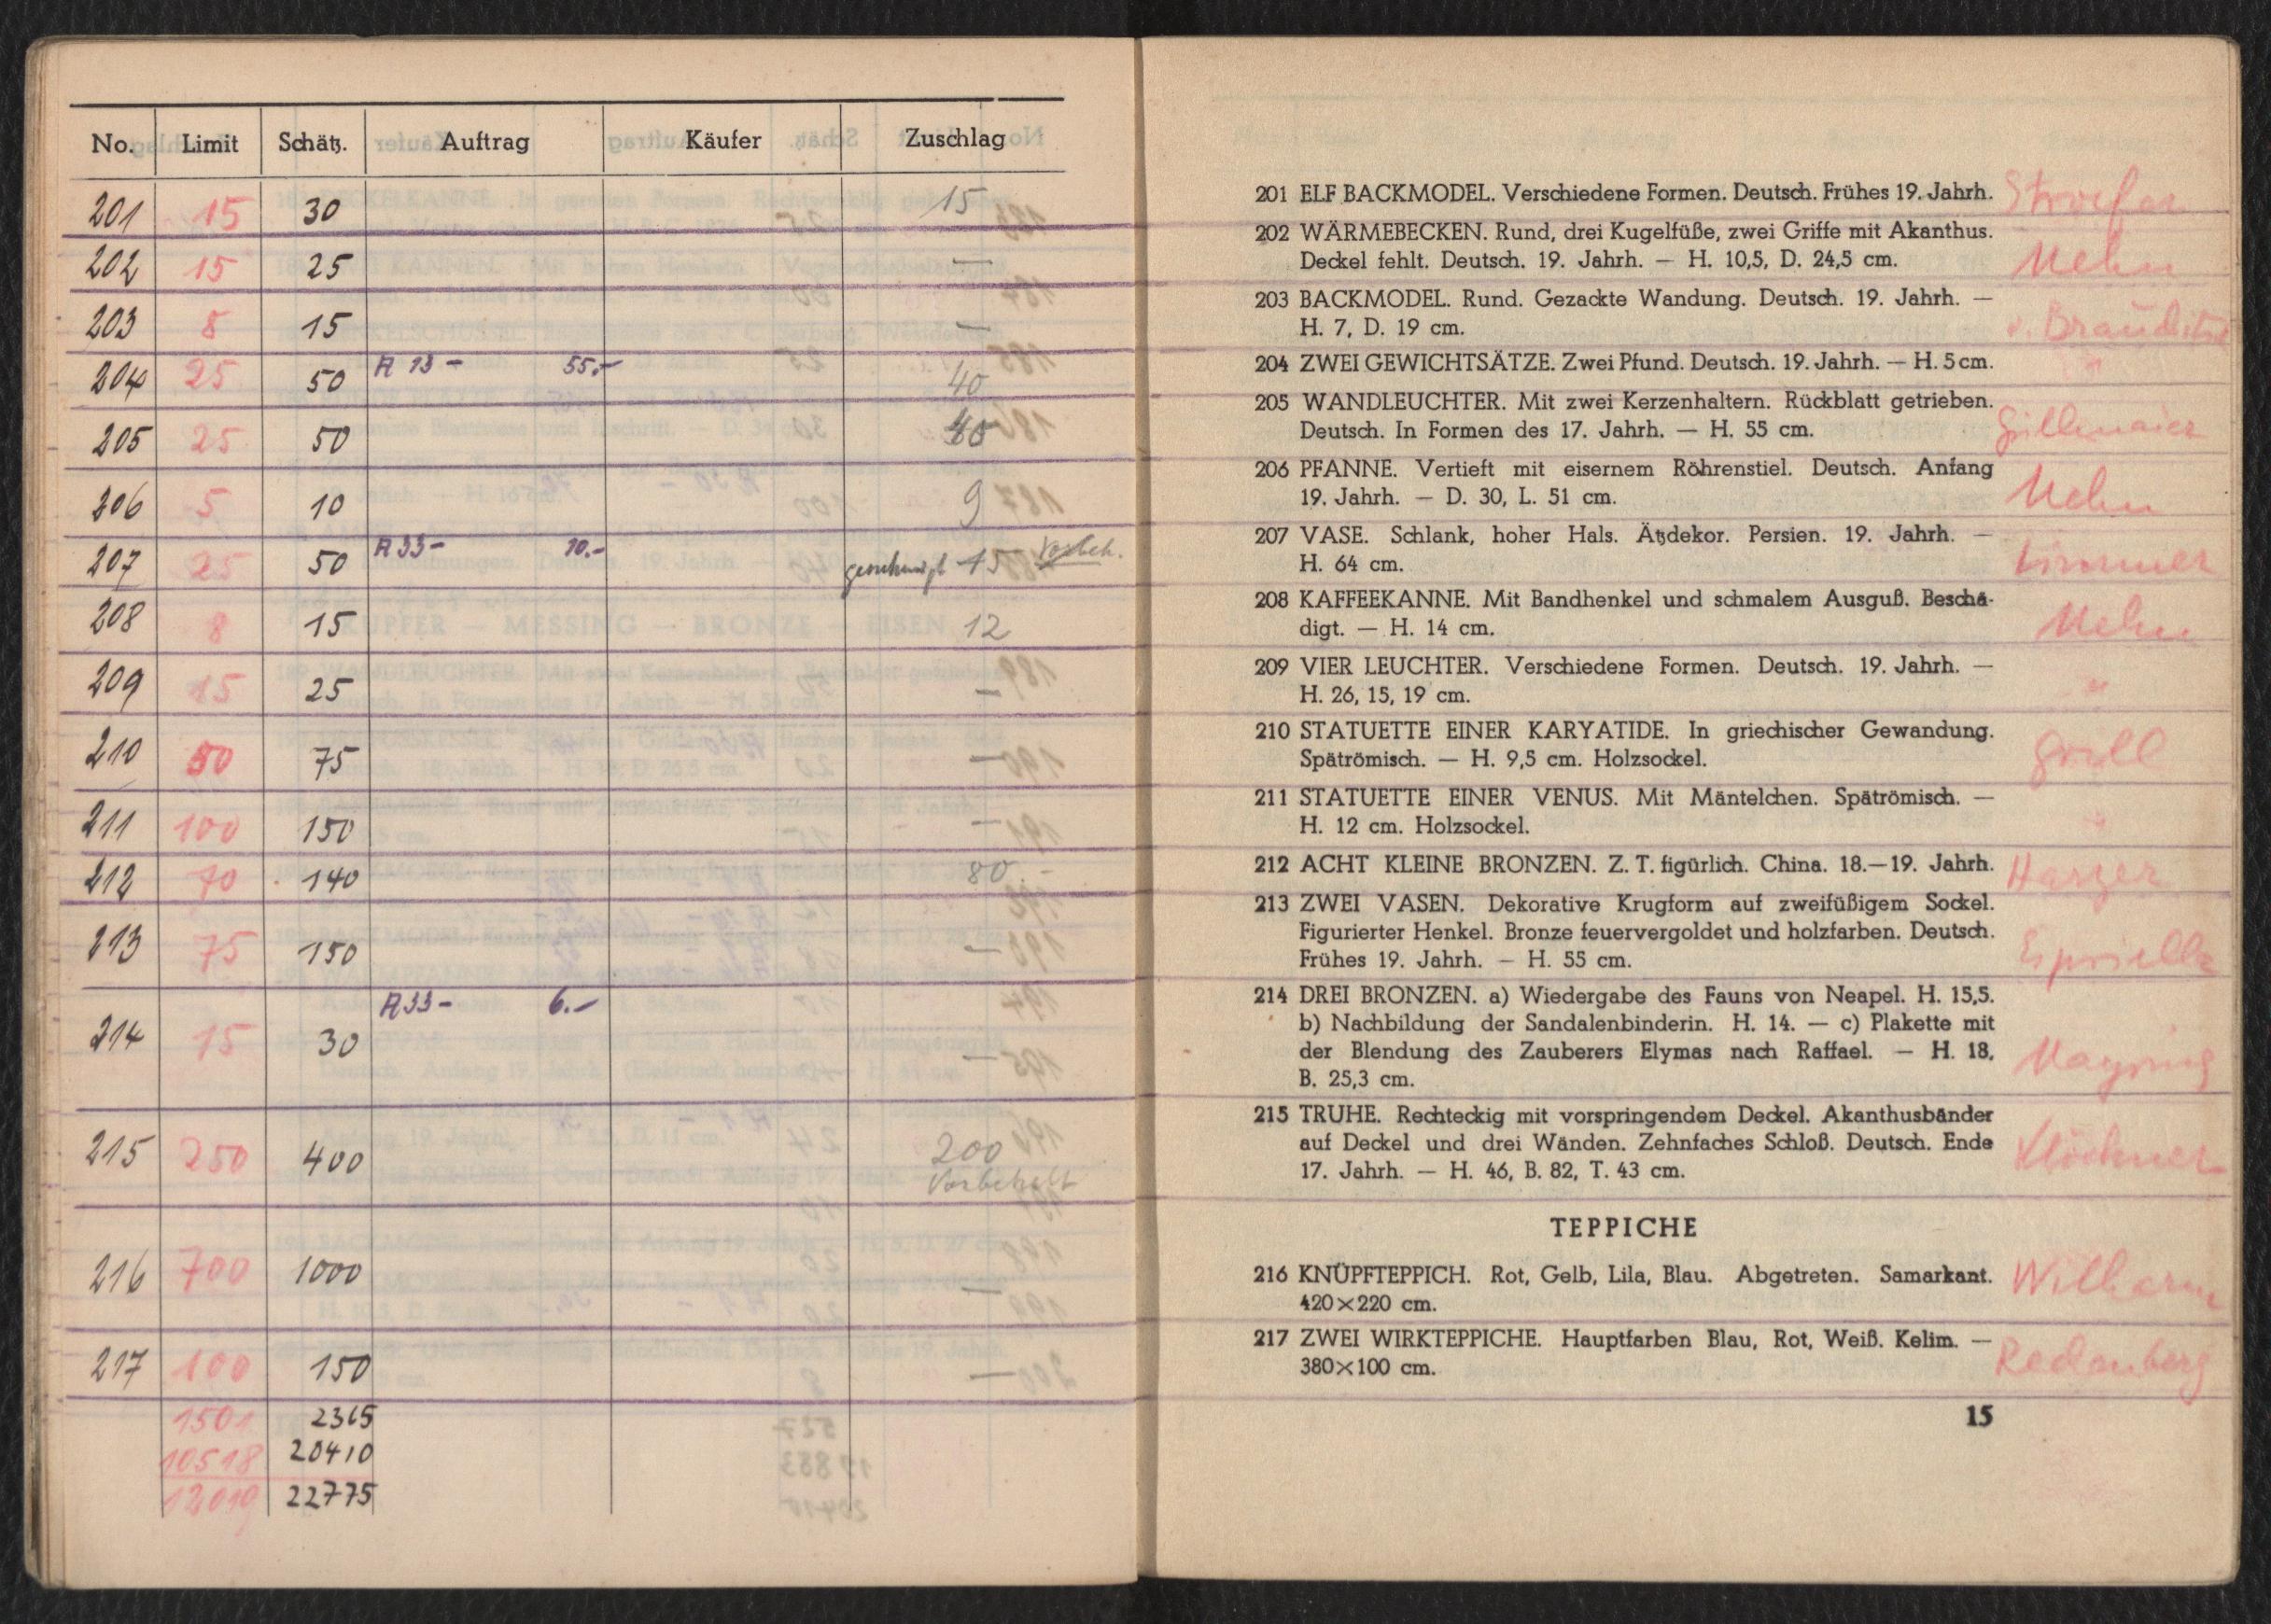 No. Limit Schätz. Auftrag Käufer Zuschlag
201 15 30 15
202 15 25 —
203 8 15 —
204 25 50 A 13 - 55.- 40
205 25 50 40
206 5 10 9
207 25 50 A 33 - 10.- genehmigt 15 Vorbeh.
208 8 15 12
209 15 25 —
210 50 75 —
211 100 150 —
212 70 140 80.-
213 75 150 —
214 15 30 A 33 - 6.- —
215 250 400 200
Vorbehalt
216 700 1000 —
217 100 150 —
1501 2365
10518 20410
12019 22775
201 ELF BACKMODEL. Verschiedene Formen. Deutsch. Frühes 19. Jahrh.
202 WÄRMEBECKEN. Rund, drei Kugelfüße, zwei Griffe mit Akanthus.
Deckel fehlt. Deutsch. 19. Jahrh. — H. 10,5, D. 24,5 cm.
203 BACKMODEL. Rund. Gezackte Wandung. Deutsch. 19. Jahrh. —
H. 7, D. 19 cm.
204 ZWEI GEWICHTSÄTZE. Zwei Pfund. Deutsch. 19. Jahrh. — H. 5 cm. "
205 WANDLEUCHTER. Mit zwei Kerzenhaltern. Rückblatt getrieben.
Deutsch. In Formen des 17. Jahrh. — H. 55 cm. Gillmaier
206 PFANNE. Vertieft mit eisernem Röhrenstiel. Deutsch. Anfang
19. Jahrh. — D. 30, L. 51 cm.
207 VASE. Schlank, hoher Hals. Ätzdekor. Persien. 19. Jahrh. —
H. 64 cm.
208 KAFFEEKANNE. Mit Bandhenkel und schmalem Ausguß. Beschä-
digt. — H. 14 cm.
209 VIER LEUCHTER. Verschiedene Formen. Deutsch. 19. Jahrh. —
H. 26, 15, 19 cm. "
210 STATUETTE EINER KARYATIDE. In griechischer Gewandung.
Spätrömisch. — H. 9,5 cm. Holzsockel. Grill
211 STATUETTE EINER VENUS. Mit Mäntelchen. Spätrömisch. —
H. 12 cm. Holzsockel. "
212 ACHT KLEINE BRONZEN. Z. T. figürlich. China. 18.—19. Jahrh. Harzer
213 ZWEI VASEN. Dekorative Krugform auf zweifüßigem Sockel.
Figurierter Henkel. Bronze feuervergoldet und holzfarben. Deutsch.
Frühes 19. Jahrh. — H. 55 cm.
214 DREI BRONZEN. a) Wiedergabe des Fauns von Neapel. H. 15,5.
b) Nachbildung der Sandalenbinderin. H. 14. — c) Plakette mit
der Blendung des Zauberers Elymas nach Raffael. — H. 18,
B. 25,3 cm.
215 TRUHE. Rechteckig mit vorspringendem Deckel. Akanthusbänder
auf Deckel und drei Wänden. Zehnfaches Schloß. Deutsch. Ende
17. Jahrh. — H. 46, B. 82, T. 43 cm. Klöckner
TEPPICHE
216 KNÜPFTEPPICH. Rot, Gelb, Lila, Blau. Abgetreten. Samarkant.
420×220 cm. Wilharm
217 ZWEI WIRKTEPPICHE. Hauptfarben Blau, Rot, Weiß. Kelim. —
380×100 cm. Redenberg
15